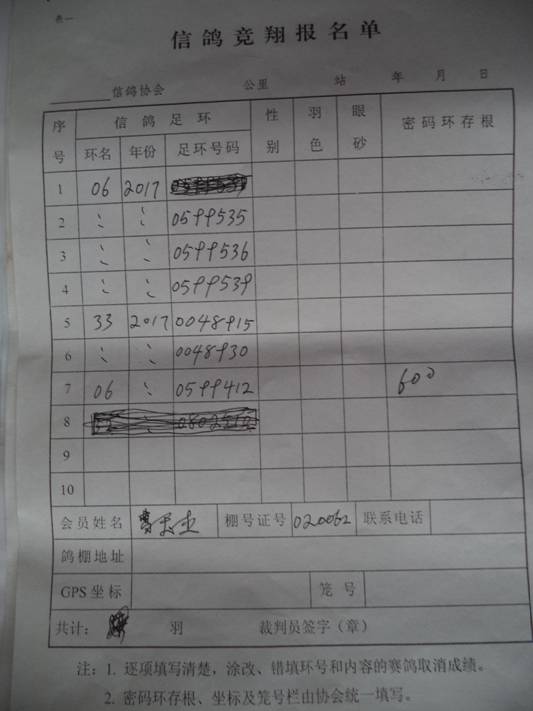 表一
信鸽竞翔报名单
信鸽协会 公里 站 年 月 日
序号 信鸽足环 性别 羽色 眼砂 密码环存根
环名 年份 足环号码
1 06 2017
2 〃 〃 0599535
3 〃 〃 0599536
4 〃 〃 0599539
5 33 2017 0048915
6 〃 〃 0048930
7 06 〃 0599412 600
8
9
10
会员姓名 棚号证号 020062 联系电话
鸽棚地址
GPS坐标 笼号
共计: 羽 裁判员签字(章)
注:1. 逐项填写清楚,涂改、错填环号和内容的赛鸽取消成绩。
2. 密码环存根、坐标及笼号栏由协会统一填写。